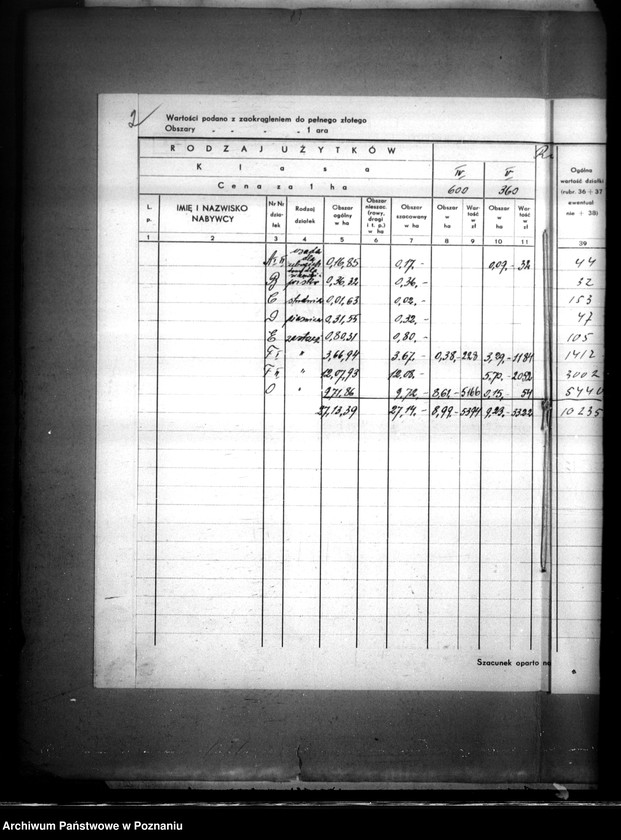 2
Wartości podano z zaokrągleniem do pełnego złotego
Obszary „ „ „ „ 1 ara
RODZAJ UŻYTKÓW
Klasa IV V
Cena za 1 ha 600 360
Ogólna wartość działki (rubr. 36 + 37 ewentual nie + 38)
L. p. IMIĘ I NAZWISKO NABYWCY Nr Nr dzia-łek Rodzaj działek Obszar ogólny w ha Obszar nieszac. (rowy, drogi i t. p.) w ha Obszar szacowany w ha Obszar w ha War tość w zł Obszar w ha War tość w zł
1 2 3 4 5 6 7 8 9 10 11 39
osada dla 0,16,85 0,17.- 0,09.- 32 44
B 0,36,22 0,36.- 32
C studnia 0,01,63 0,02.- 153
D 0,31,55 0,32.- 47
E 0,80,31 0,80.- 105
F I „ 3,66,94 3,67.- 0,38.- 228 3,29.- 1184 1412
F II „ 12,07,93 12,08.- 5,70.- 2052 3002
„ 9,71,86 9,72.- 8,61.- 5166 0,15.- 54 5440
27,13,39 27,14.- 8,99.- 5394 9,23.- 3322 10235
Szacunek oparto na
Archiwum Państwowe w Poznaniu